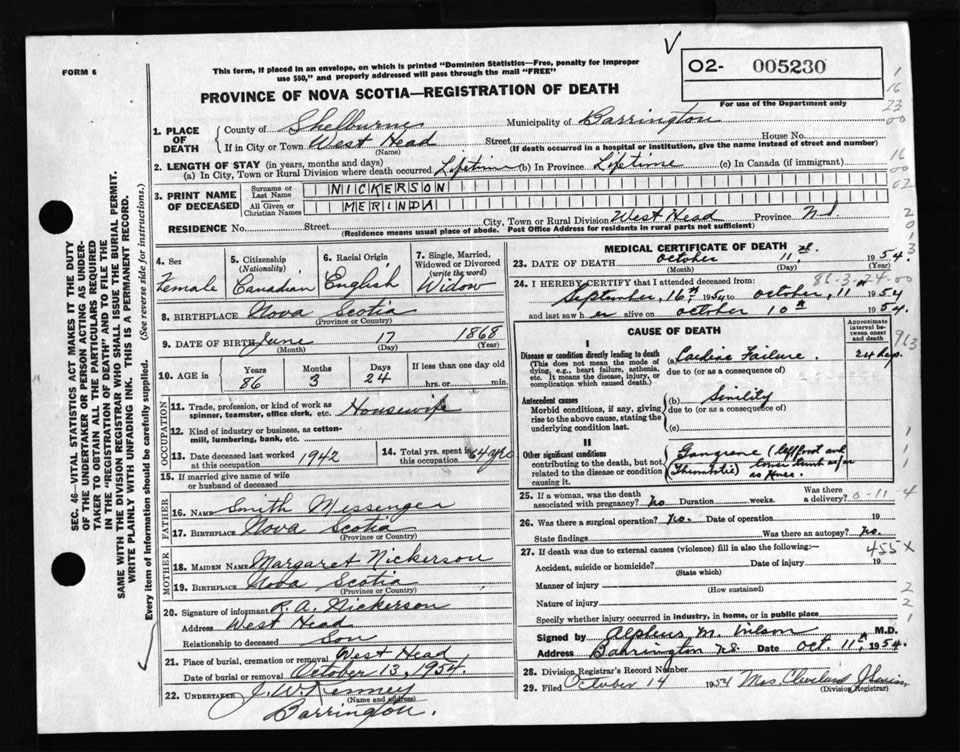 FORM 6
This form, if placed in an envelope, on which is printed "Dominion Statistics—Free, penalty for improper
use $50," and properly addressed will pass through the mail "FREE"
PROVINCE OF NOVA SCOTIA—REGISTRATION OF DEATH
02- 005230
For use of the Department only
1. PLACE OF DEATH
County of Shelburne Municipality of Barrington
If in City or Town West Head Street House No.
(Name) (If death occurred in a hospital or institution, give the name instead of street and number)
2. LENGTH OF STAY (in years, months and days)
(a) In City, Town or Rural Division where death occurred Lifetim (b) In Province Lifetime (c) In Canada (if immigrant)
3. PRINT NAME OF DECEASED
Surname or Last Name NICKERSON
All Given or Christian Names MERINDA
RESIDENCE No. Street City, Town or Rural Division West Head Province N.S.
(Residence means usual place of abode. Post Office Address for residents in rural parts not sufficient)
4. Sex Female
5. Citizenship (Nationality) Canadian
6. Racial Origin English
7. Single, Married, Widowed or Divorced (write the word) Widow
8. BIRTHPLACE Nova Scotia
(Province or Country)
9. DATE OF BIRTH June 17 1868
(Month) (Day) (Year)
10. AGE in Years 86 Months 3 Days 24 If less than one day old hrs. or min.
OCCUPATION
11. Trade, profession, or kind of work as spinner, teamster, office clerk, etc. Housewife
12. Kind of industry or business, as cotton-mill, lumbering, bank, etc.
13. Date deceased last worked at this occupation 1942
14. Total yrs. spent in this occupation 64 yrs
15. If married give name of wife or husband of deceased
FATHER
16. Name Smith Messenger
17. BIRTHPLACE Nova Scotia
(Province or Country)
MOTHER
18. MAIDEN NAME Margaret Nickerson
19. BIRTHPLACE Nova Scotia
(Province or Country)
20. Signature of informant R. A. Nickerson
Address West Head
Relationship to deceased Son
21. Place of burial, cremation or removal West Head
Date of burial or removal October 13, 1954.
22. UNDERTAKER J. W. Kenney
(Name and address)
Barrington.
MEDICAL CERTIFICATE OF DEATH
23. DATE OF DEATH October 11th. 1954
(Month) (Day) (Year)
86-3-24
24. I HEREBY CERTIFY that I attended deceased from:
September, 16th 1954 to October, 11th 1954
and last saw her alive on October 10th 1954.
CAUSE OF DEATH
Approximate interval between onset and death
I
Disease or condition directly leading to death (a) Cardiac Failure. 24 days.
(This does not mean the mode of dying, e.g., heart failure, asthenia, etc. It means the disease, injury, or complication which caused death.)
due to (or as a consequence of)
Antecedent causes
Morbid conditions, if any, giving rise to the above cause, stating the underlying condition last.
(b) Sinility
due to (or as a consequence of)
(c)
II
Other significant conditions
contributing to the death, but not related to the disease or condition causing it.
Gangrene (left foot and
lower limb as far
as knee.
25. If a woman, was the death associated with pregnancy? No Duration weeks. Was there a delivery?
0-11-4
26. Was there a surgical operation? No. Date of operation 19
State findings Was there an autopsy? No.
27. If death was due to external causes (violence) fill in also the following:—
455 X
Accident, suicide or homicide? Date of injury 19
(State which)
Manner of injury
(How sustained)
Nature of injury
Specify whether injury occurred in industry, in home, or in public place
Signed by Alpheus M. Wilson M.D.
Address Barrington N.S. Date Oct. 11th, 1954.
28. Division Registrar's Record Number
29. Filed October 14 1954 Mrs. Cleveland
(Division Registrar)
SEC. 46—VITAL STATISTICS ACT MAKES IT THE DUTY
OF THE UNDERTAKER OR PERSON ACTING AS UNDER-
TAKER TO OBTAIN ALL THE PARTICULARS REQUIRED
IN THE "REGISTRATION OF DEATH" AND TO FILE THE
SAME WITH THE DIVISION REGISTRAR WHO SHALL ISSUE THE BURIAL PERMIT.
WRITE PLAINLY WITH UNFADING INK. THIS IS A PERMANENT RECORD.
Every item of Information should be carefully supplied. (See reverse side for instructions.)